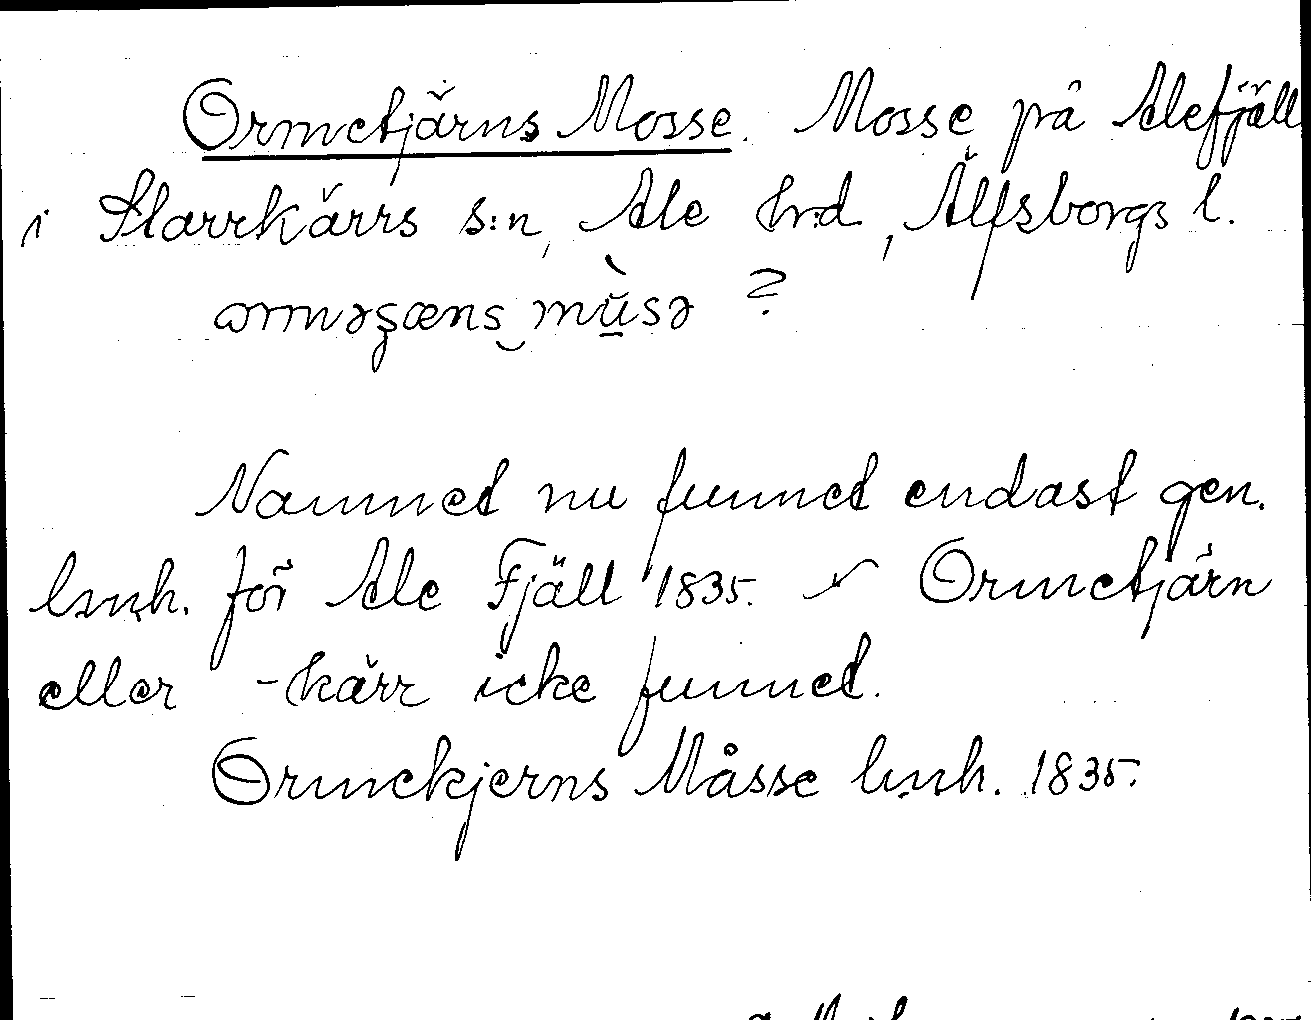 Ormetjärns Mosse. Mosse på Alefjäll
i Starrkärrs s:n, Ale hrd, Älfsborgs l.
orməʂæns mùsə ?
Namnet nu funnet endast gen.
lmh. för Ale Fjäll 1835. Ormetjärn
eller -kärr icke funnet.
Ormekjerns Måsse lmh. 1835.